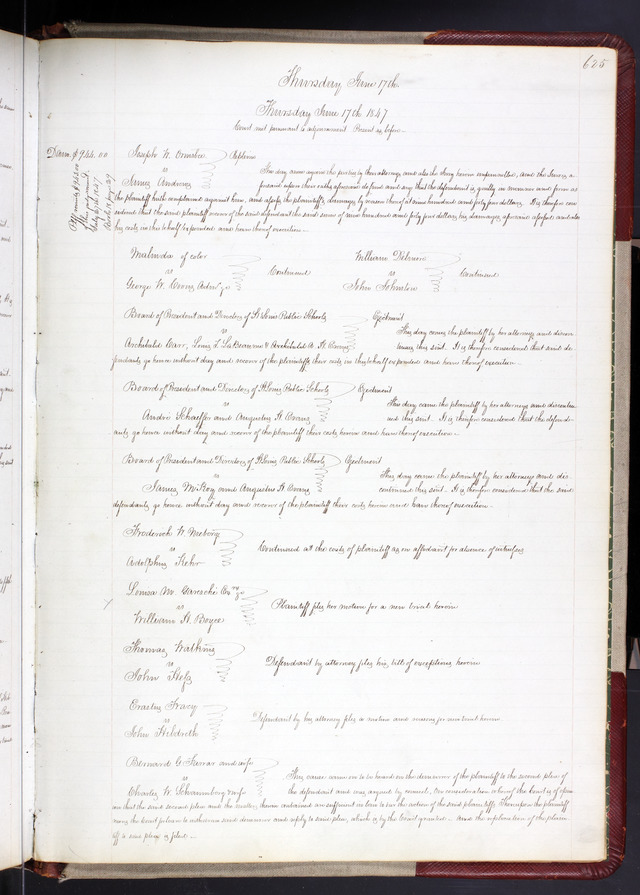 625
Thursday June 17th
Thursday June 17th 1847
Court met pursuant to adjournment Present as before
Dam. $944.00
Joseph W. Replevin
vs
James Andrews
This day come again the parties by their attorneys and also the Jury herein empannelled, and the Jurors
upon their oaths aforesaid do find and say that the defendant is guilty in manner and form as
the plaintiff hath complained against him, and assess the plaintiffs damages by reason thereof at nine hundred and forty four dollars. It is therefore con
sidered that the said plaintiff recover of the said defendant the said sum of nine hundred and forty four dollars his damages aforesaid assessed and also
his costs in this behalf expended and have thereof execution.
Malinda of color
vs Continued
George W. Coons Admr &c
William Dilmore
vs Continued
John Johnston
Board of President and Directors of St Louis Public Schools Ejectment
vs
This day comes the plaintiff by her attorney and discon
Archibald Carr, Louis L. and Archibald A. H. Evans
tinues this suit. It is therefore considered that said de
fendants go hence without day and recover of the plaintiff their costs in this behalf expended and have thereof execution.
Board of President and Directors of St Louis Public Schools Ejectment
vs
This day came the plaintiff by her attorney and discontin
Andre Schaeffer and Augustus H. Evans
ued this suit. It is therefore considered that the defend
ants go hence without day and recover of the plaintiff their costs herein and have thereof execution.
Board of President and Directors of St Louis Public Schools Ejectment
vs
This day came the plaintiff by her attorney and dis
James McKoy and Augustus H. Evans
continued this suit. It is therefore considered that the said
defendants go hence without day and recover of the plaintiff their costs herein and have thereof execution.
Frederick W.
vs Continued at the costs of plaintiff as on affidavit for absence of witnesses
Adolphus Kehr
Louisa M. Garesche Exx &c
vs Plaintiff files her motion for a new trial herein
William H. Boyce
Thomas Watkins
vs Defendant by attorney files his bill of exceptions herein
John
Erastus Tracy
vs Defendant by his attorney files a motion and reasons for new trial herein
John Hildreth
Bernard G. Farrar and wife
vs
This cause came on to be heard on the demurrer of the plaintiff to the second plea of
Charles W. Schaumburg
the defendant and was argued by counsel, On consideration whereof the Court is of opin
ion that the said second plea and the matters therein contained are sufficient in law to bar the action of the said plaintiffs. Thereupon the plaintiff
moves the Court for leave to withdraw said demurrer and reply to said plea, which is by the Court granted. And the replication of the plain
tiff to said plea is filed.